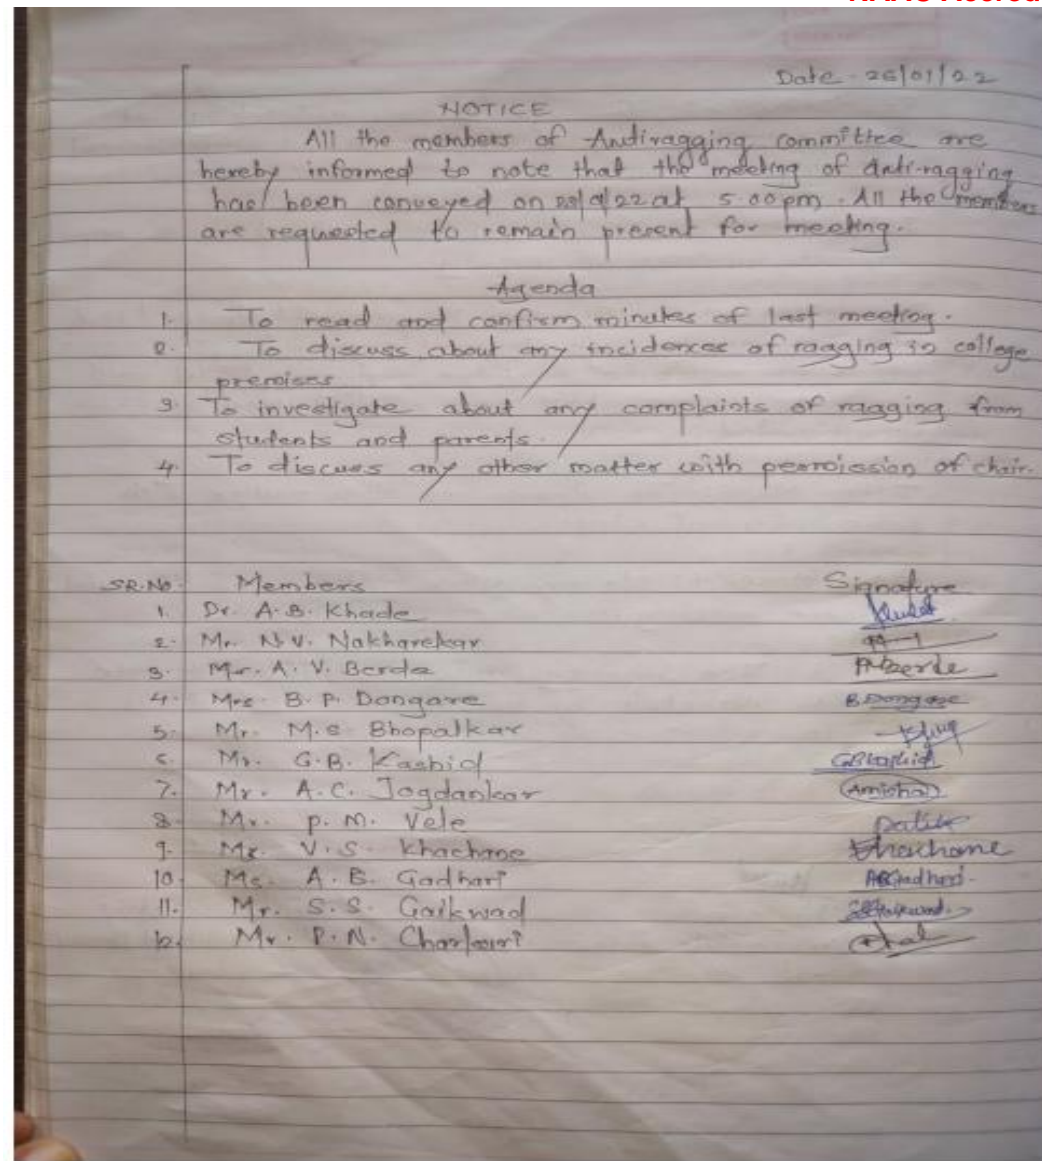 Date - 25/01/22
NOTICE
All the members of Antiragging committee are
hereby informed to note that the meeting of Anti-ragging
has been conveyed on at 5.00pm. All the members
are requested to remain present for meeting.
Agenda
1. To read and confirm minutes of last meeting.
2. To discuss about any incidences of ragging in college
premises
3. To investigate about any complaints of ragging from
students and parents.
4. To discuss any other matter with permission of chair.
SR.No. Members Signature
1. Dr. A.B. Khade
2. Mr. N.V. Nakharekar
3. Mr. A. V. Berde AVBerde
4. Mrs. B. P. Dongare B.Dongare
5. Mr. M.S Bhopalkar
6. Mr. G.B. Kashid GBKashid
7. Mr. A.C. Jogdankar Amisha
8. Mr. P. M. Vele
9. Mr. V.S. Khachane Khachane
10. Ms. A.B. Gadhari ABGadhari
11. Mr. S.S. Gaikwad SSGaikwad
12. Mr. P.N.